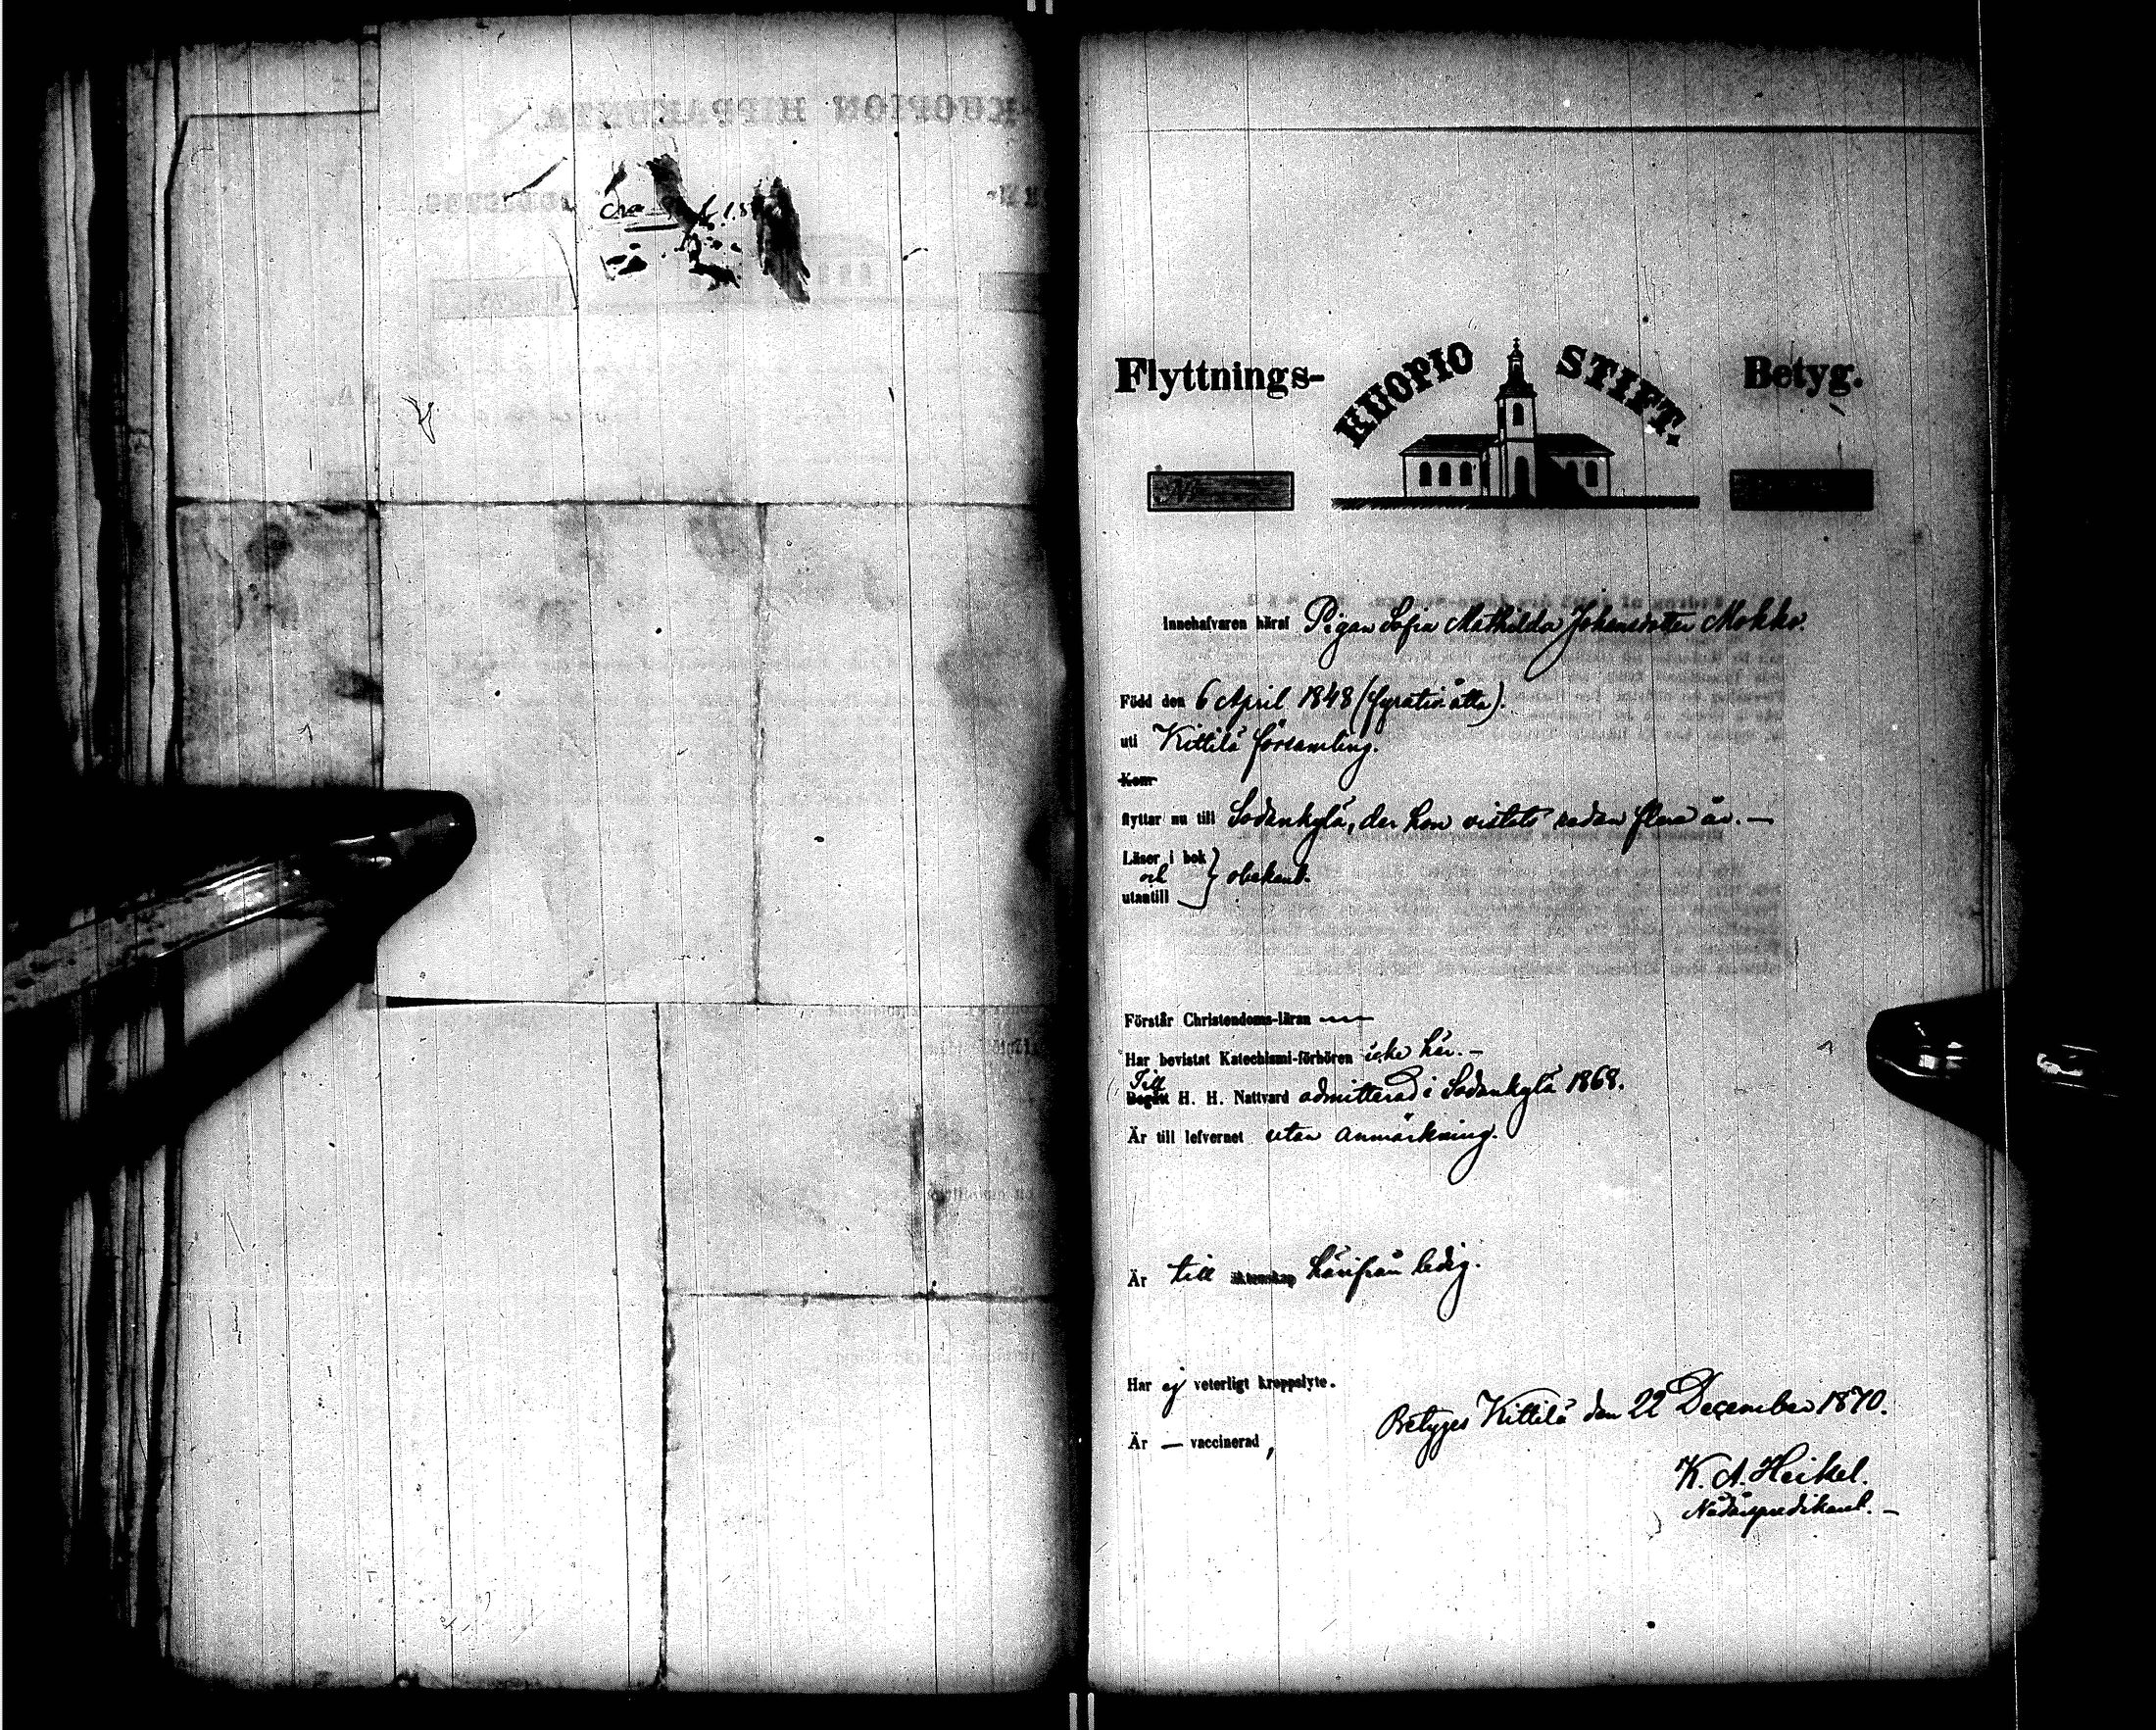 KUOPION HIPPAKUNTA.
Flyttnings- KUOPIO STIFT. Betyg.
N:o
Innehafvaren häraf Pigan Sofia Mathilda Johansdotter Mokko.
Född den 6 April 1848 (fyratioåtta).
uti Kittilä församling.
flyttar nu till Sodankylä, der hon vistats redan flera år. —
Läser i bok
och } obekant.
utantill
Förstår Christendoms-läran —
Har bevistat Katechismi-förhören icke här. —
Till
Begått H. H. Nattvard admitterad i Sodankylä 1868.
Är till lefvernet utan anmärkning.
Är till äktenskap härifrån ledig.
Har ej veterligt kroppslyte.
Är — vaccinerad,
Betyges Kittilä den 22 December 1870.
K. A. Heikel.
Nådårspredikant. —